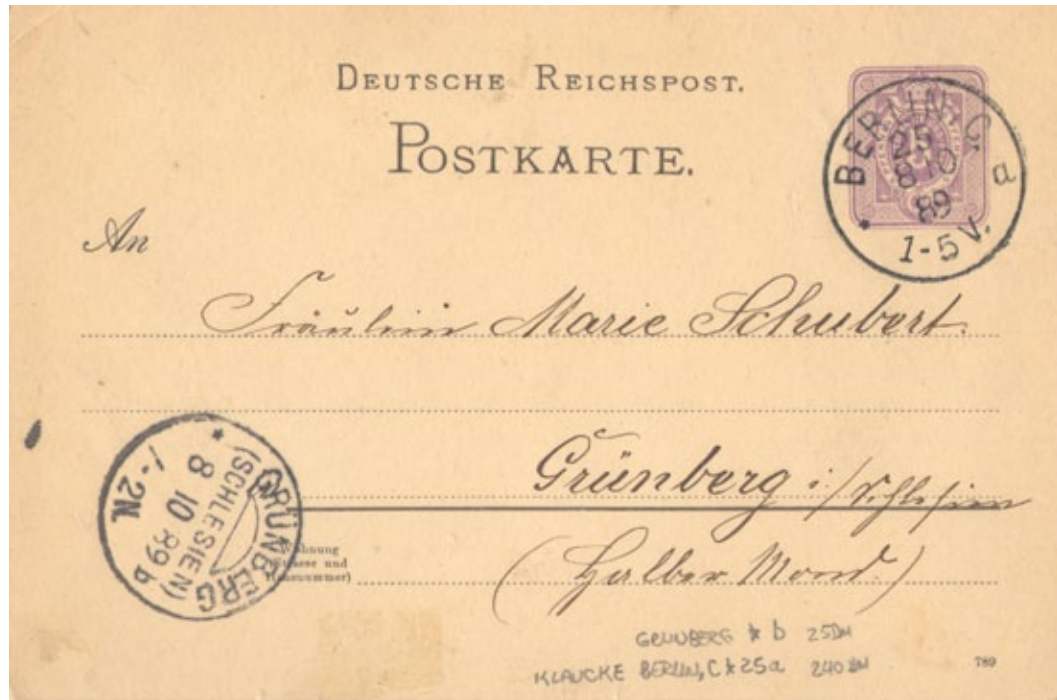 DEUTSCHE REICHSPOST.
POSTKARTE.
BERLIN, C.
25
8 10
89
a
* 1-5 V.
An
Fräulein Marie Schubert.
Grünberg i/Schlesien
(Halber Mond.)
GRÜNBERG
(SCHLESIEN)
8 10 89 b
* 1-2N.
Wohnung
(Strasse und
Hausnummer)
GRUNBERG * b 25DM
KLAUCKE BERLIN, C * 25a 240 DM
789